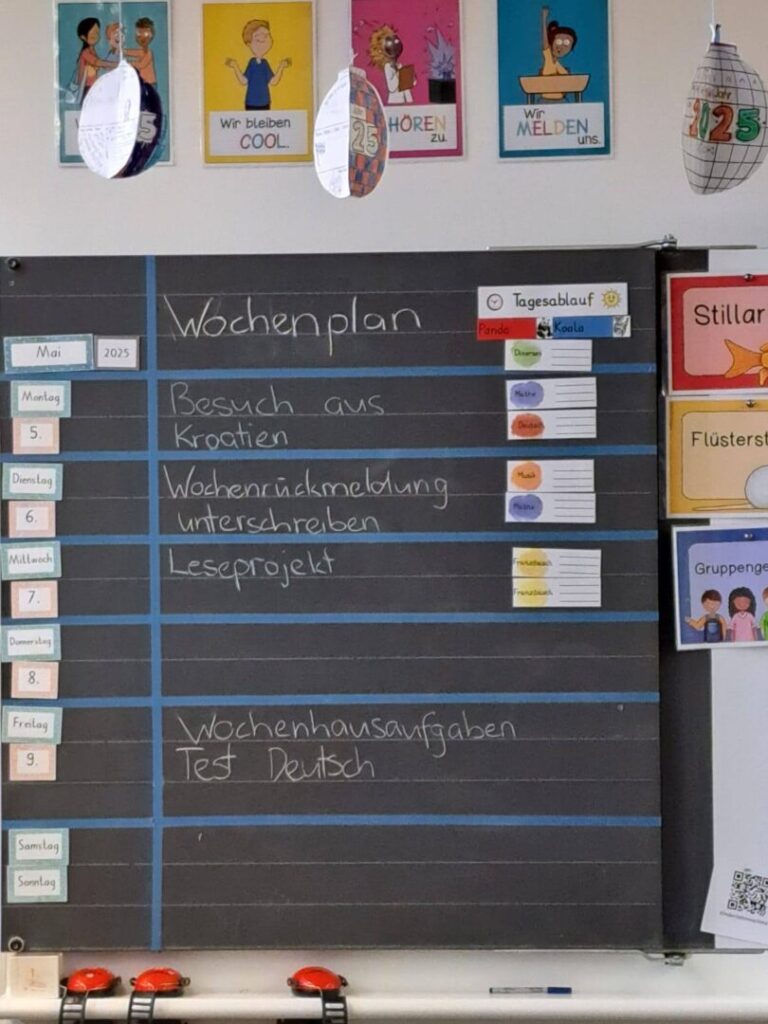 Wir bleiben
COOL.
HÖREN
zu.
Wir
MELDEN
uns.
25
2025
Wochenplan
Tagesablauf
Panda Koala
Mai 2025
Montag
5.
Besuch aus
Kroatien
Mathe
Deutsch
Dienstag
6.
Wochenrückmeldung
unterschreiben
Musik
Mathe
Mittwoch
7.
Leseprojekt
Französisch
Französisch
Donnerstag
8.
Freitag
9.
Wochenhausaufgaben
Test Deutsch
Samstag
Sonntag
Stillar
Flüsterst
Gruppenge